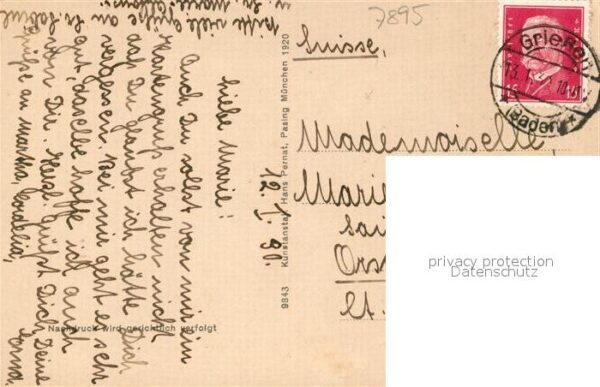 7895
Suisse,
Grießen
13. 1.
(Baden)
Mademoiselle,
Marie
Ors
Ct.
privacy protection
Datenschutz
9843 Kunstanstalt Hans Pernat, Pasing München 1920
Nachdruck wird gerichtlich verfolgt
12. I. 30.
Liebe Marie!
Auch Du sollst von mir ein
Kartengruß erhalten, nicht
daß Du glaubst ich hätte Dich
vergessen. Bei mir geht es sehr
gut, dasselbe hoffe ich auch
von Dir. Herzl. grüßt Dich Deine
Grüße an Martha,
Bitte viele Grüße an